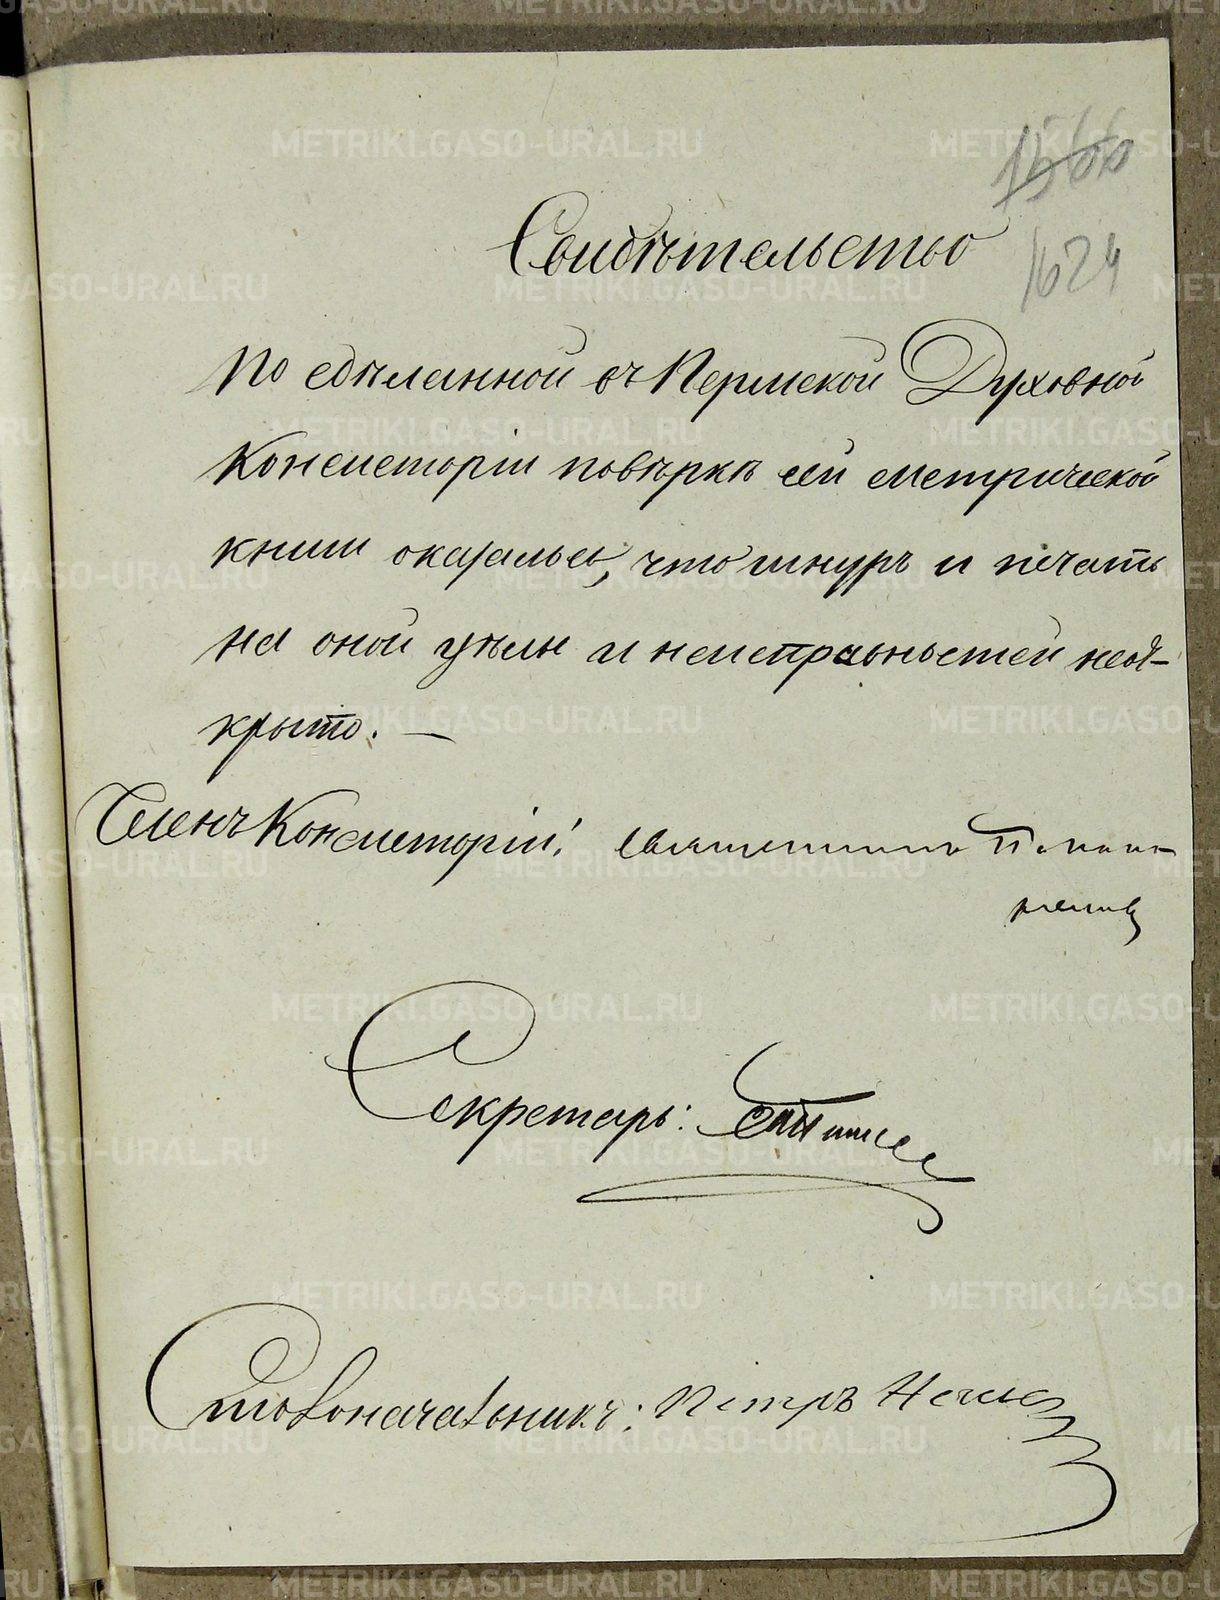 1566
1624
Свидѣтельство
По сдѣланной въ Пермской Духовной
Консисторіи повѣркѣ сей метрической
книги оказалось, что шнуръ и печать
на оной цѣлы и неисправностей неот-
крыто. —
Членъ Консисторіи: священникъ
Секретарь:
Столоначальникъ: Петръ
METRIKI.GASO-URAL.RU